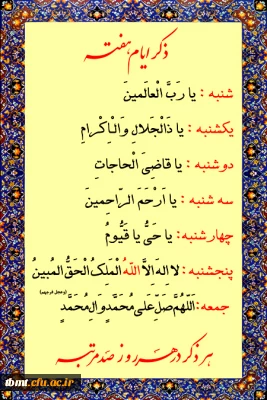 ذکر ایام هفته
شنبه : یا رَبَّ الْعالَمینَ
یکشنبه : یا ذَالْجَلالِ وَالْاِکْرامِ
دوشنبه : یا قاضِیَ الْحاجاتِ
سه شنبه : یا اَرْحَمَ الرّاحِمینَ
چهارشنبه: یا حَیُّ یا قَیُّومُ
پنجشنبه: لا اِلهَ اِلاَّ اللهُ الْمَلِکُ الْحَقُّ الْمُبینُ
جمعه: اَللّهُمَّ صَلِّ عَلی مُحَمَّدٍ وَ الِ مُحَمَّدٍ (وعجل فرجهم)
هر ذکر در هر روز صد مرتبه
ibmt.cfu.ac.ir